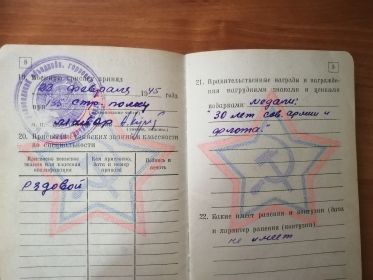 8
19. Военную присягу принял
23 февраля 1945 года
при стр. полку
майор
20. Присвоение воинских званий и классности
по специальности
Присвоено воинское
звание или классная
квалификация
Кем присвоено,
дата и номер
приказа
Подпись и
печать
Рядовой
9
21. Правительственные награды и награжде-
ния нагрудными знаками и ценными
подарками медаль:
"30 лет сов. армии и
флота."
22. Какие имеет ранения и контузии (дата
и характер ранения (контузии)
не имеет